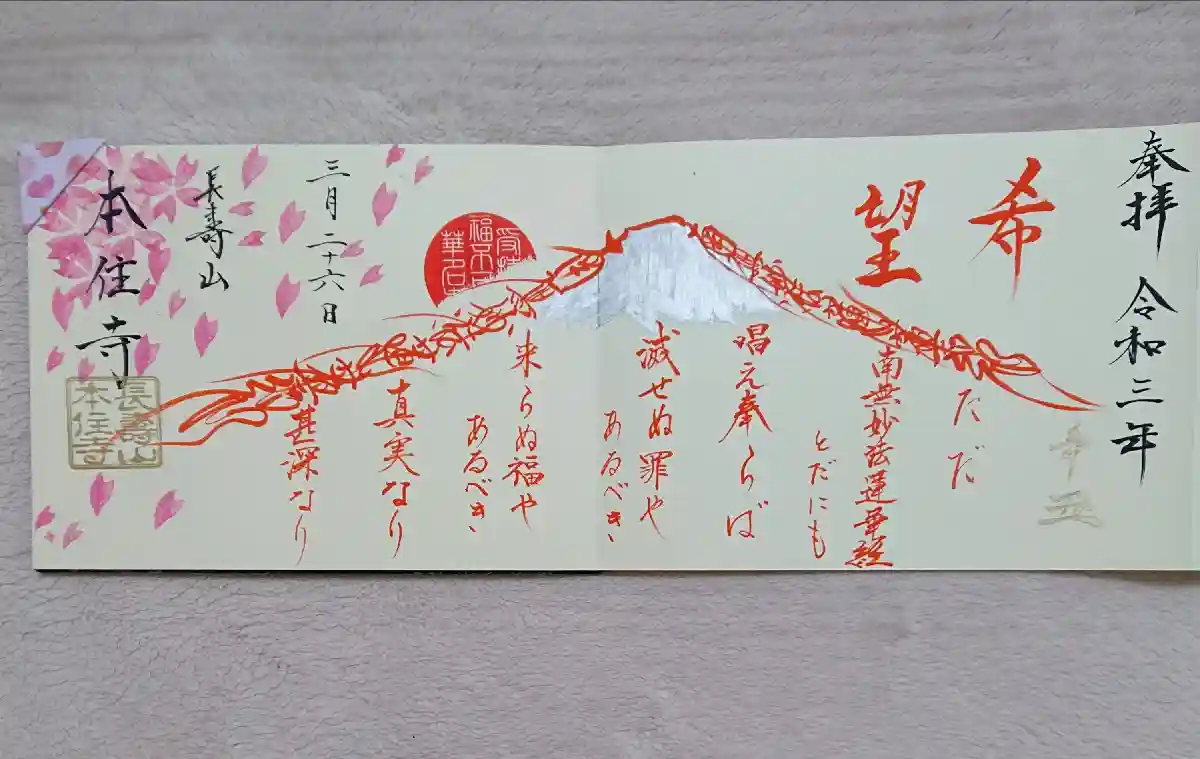 奉拝 令和三年
希望
ただ
南無妙法蓮華経
とだにも
唱え奉らば
滅せぬ罪や
あるべき、
来らぬ福や
あるべき、
真実なり
甚深なり
三月二十六日
長壽山
本住寺
長壽山
本住寺